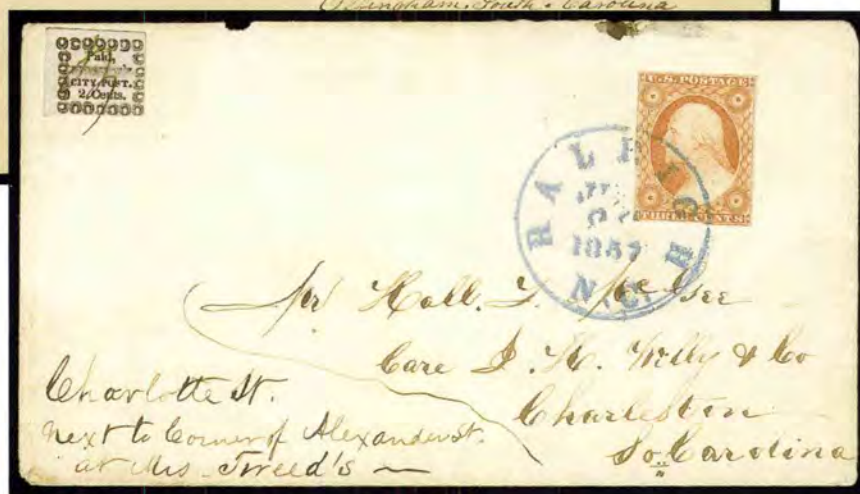 Effingham, South Carolina
Paid,
CITY POST.
2 Cents.
U.S. POSTAGE
THREE CENTS
RALEIGH
1857
N.C.
Mr Hall. T. McGee
Care J. H. Willy & Co
Charleston
So. Carolina
Charlotte St.
next to Corner of Alexander St.
at Mrs Tweed's